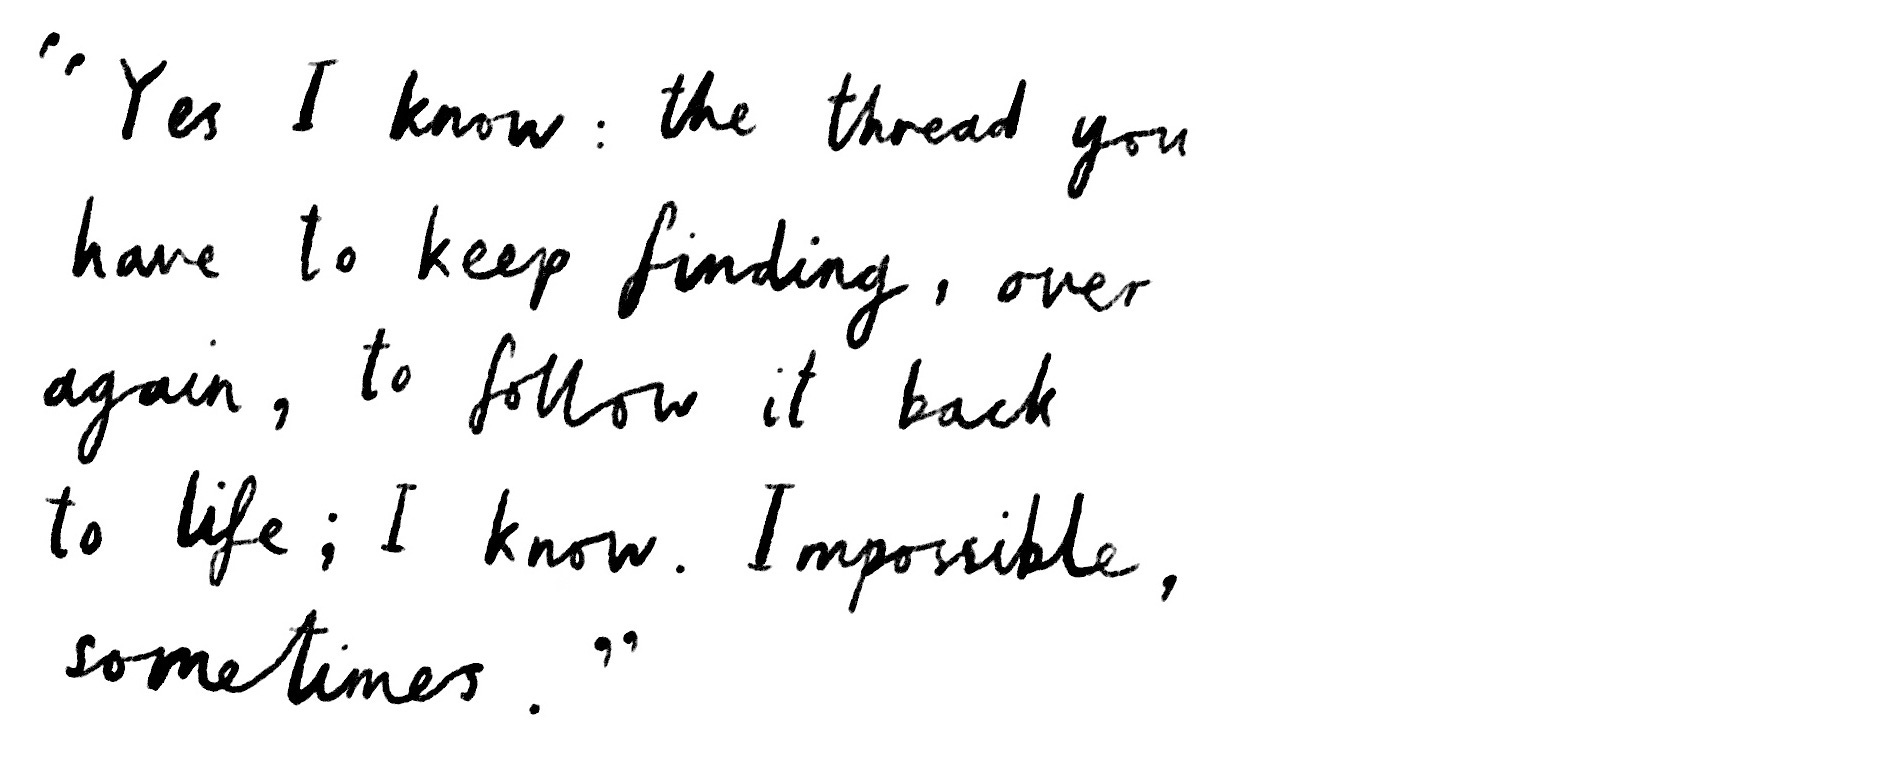 “Yes I know: the thread you
have to keep finding, over
again, to follow it back
to life; I know. Impossible,
sometimes.”